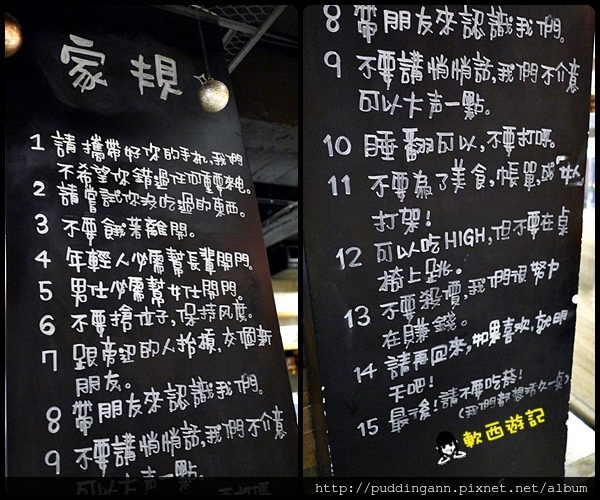 家規
1 請攜帶好你的手机,我們
不希望你錯過任何重要來电。
2 請嘗試你沒吃過的東西。
3 不要餓著離開。
4 年輕人必需幫長輩開門。
5 男仕必需幫女仕開門。
6 不要搶位子,保持风度。
7 跟帝紐的人抬槓,交個新
朋友。
8 帶朋友來認識我們。
9 不要講悄悄話,我們不介意
可以大声一點。
8 帶朋友來認識我們。
9 不要講悄悄話,我們不介意
可以大声一點。
10 睡翻可以,不要打呼。
11 不要為了美食,帳單,或女人
打架!
12 可以吃HIGH,但不要在桌
椅上跳。
13 不要殺價,我們很努力
在賺錢。
14 請再回來,如果喜欢,就明
天吧!
15 最後!請不要吃菸!
(我們都想活久一点)
軟西遊記
http://puddingann.pixnet.net/album